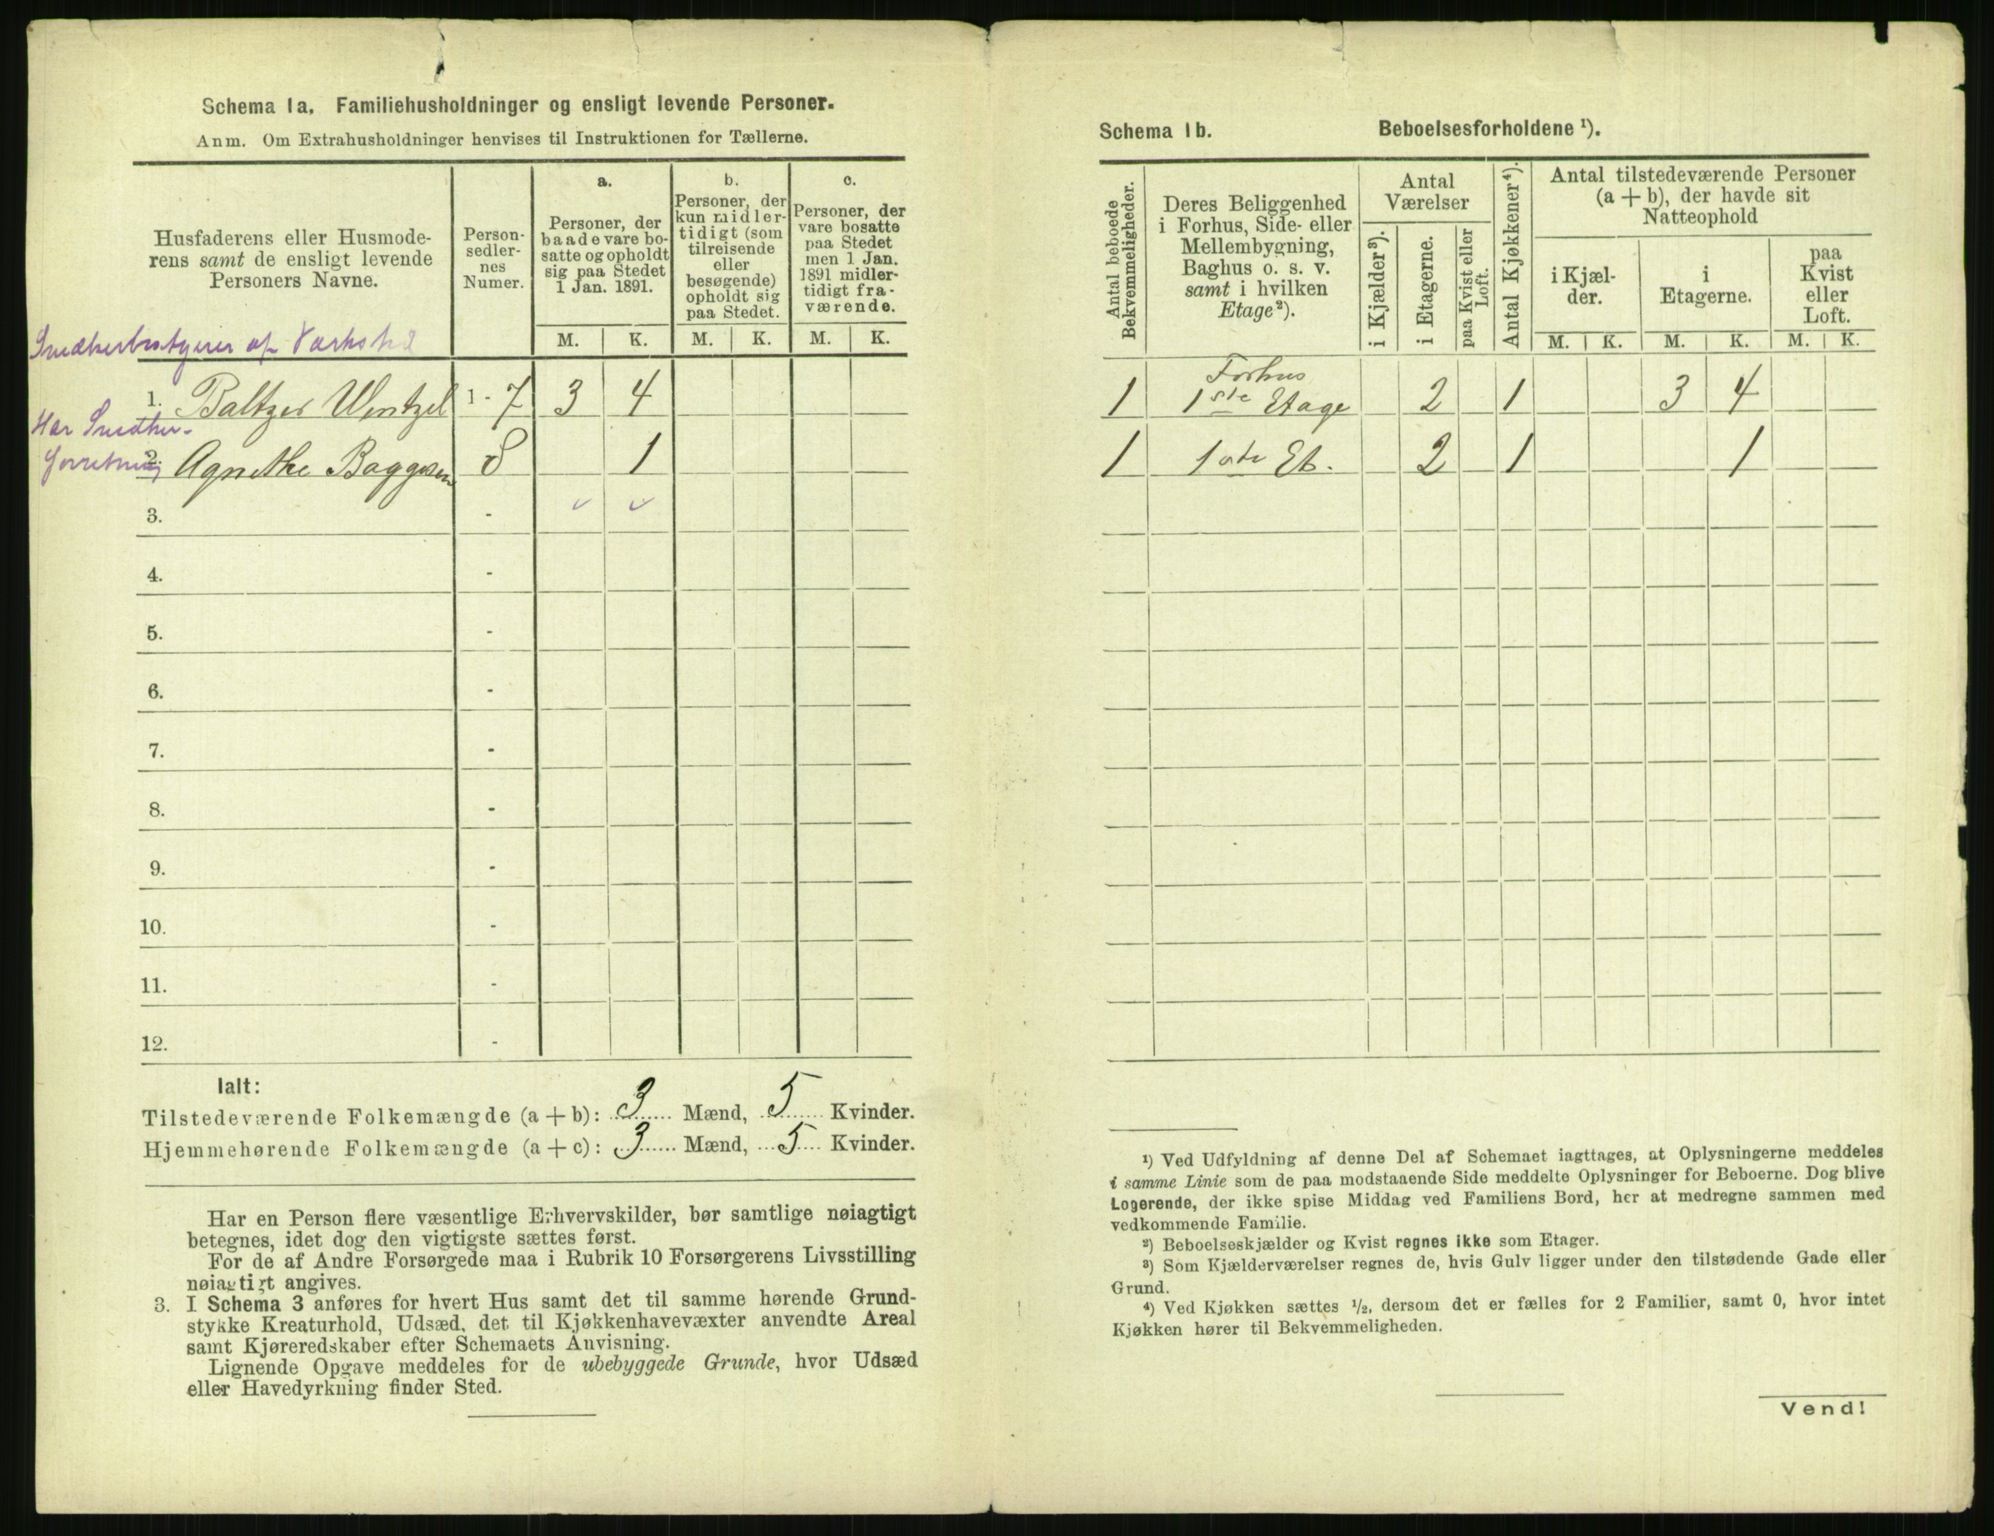 Schema 1a. Familiehusholdninger og ensligt levende Personer.
Anm. Om Extrahusholdninger henvises til Instruktionen for Tællerne.
Husfaderens eller Husmode-
rens samt de ensligt levende
Personers Navne.
Person-
sedler-
nes
Numer.
a.
Personer, der
baade vare bo-
satte og opholdt
sig paa Stedet
1 Jan. 1891.
b.
Personer, der
kun midler-
tidigt (som
tilreisende
eller
besøgende)
opholdt sig
paa Stedet.
c.
Personer, der
vare bosatte
paa Stedet
men 1 Jan.
1891 midler-
tidigt fra-
værende.
M. K. M. K. M. K.
Snedkerbestyrer af Værksted
1. Baltzer Wentzel 1 - 7 3 4
Har Snedker-
forretning
2. Agnethe Baggesen 8 1
3. -
4. -
5. -
6. -
7. -
8. -
9. -
10. -
11. -
12. -
Ialt:
Tilstedeværende Folkemængde (a + b): 3 Mænd, 5 Kvinder.
Hjemmehørende Folkemængde (a + c): 3 Mænd, 5 Kvinder.
Har en Person flere væsentlige Erhvervskilder, bør samtlige nøiagtigt
betegnes, idet dog den vigtigste sættes først.
For de af Andre Forsørgede maa i Rubrik 10 Forsørgerens Livsstilling
nøiagtigt angives.
3. I Schema 3 anføres for hvert Hus samt det til samme hørende Grund-
stykke Kreaturhold, Udsæd, det til Kjøkkenhavevæxter anvendte Areal
samt Kjøreredskaber efter Schemaets Anvisning.
Lignende Opgave meddeles for de ubebyggede Grunde, hvor Udsæd
eller Havedyrkning finder Sted.
Schema 1b. Beboelsesforholdene ¹).
Antal beboede
Bekvemmeligheder.
Deres Beliggenhed
i Forhus, Side- eller
Mellembygning,
Baghus o. s. v.
samt i hvilken
Etage²).
Antal
Værelser
i Kjælder³).
i Etagerne.
paa Kvist eller
Loft.
Antal Kjøkkener⁴).
Antal tilstedeværende Personer
(a + b), der havde sit
Natteophold
i Kjæl-
der.
i
Etagerne.
paa
Kvist
eller
Loft.
M. K. M. K. M. K.
1 Forhus
1ste Etage 2 1 3 4
1 1ste Et. 2 1 1
¹) Ved Udfyldning af denne Del af Schemaet iagttages, at Oplysningerne meddeles
i samme Linie som de paa modstaaende Side meddelte Oplysninger for Beboerne. Dog blive
Logerende, der ikke spise Middag ved Familiens Bord, her at medregne sammen med
vedkommende Familie.
²) Beboelseskjælder og Kvist regnes ikke som Etager.
³) Som Kjælderværelser regnes de, hvis Gulv ligger under den tilstødende Gade eller
Grund.
⁴) Ved Kjøkken sættes ½, dersom det er fælles for 2 Familier, samt 0, hvor intet
Kjøkken hører til Bekvemmeligheden.
Vend!